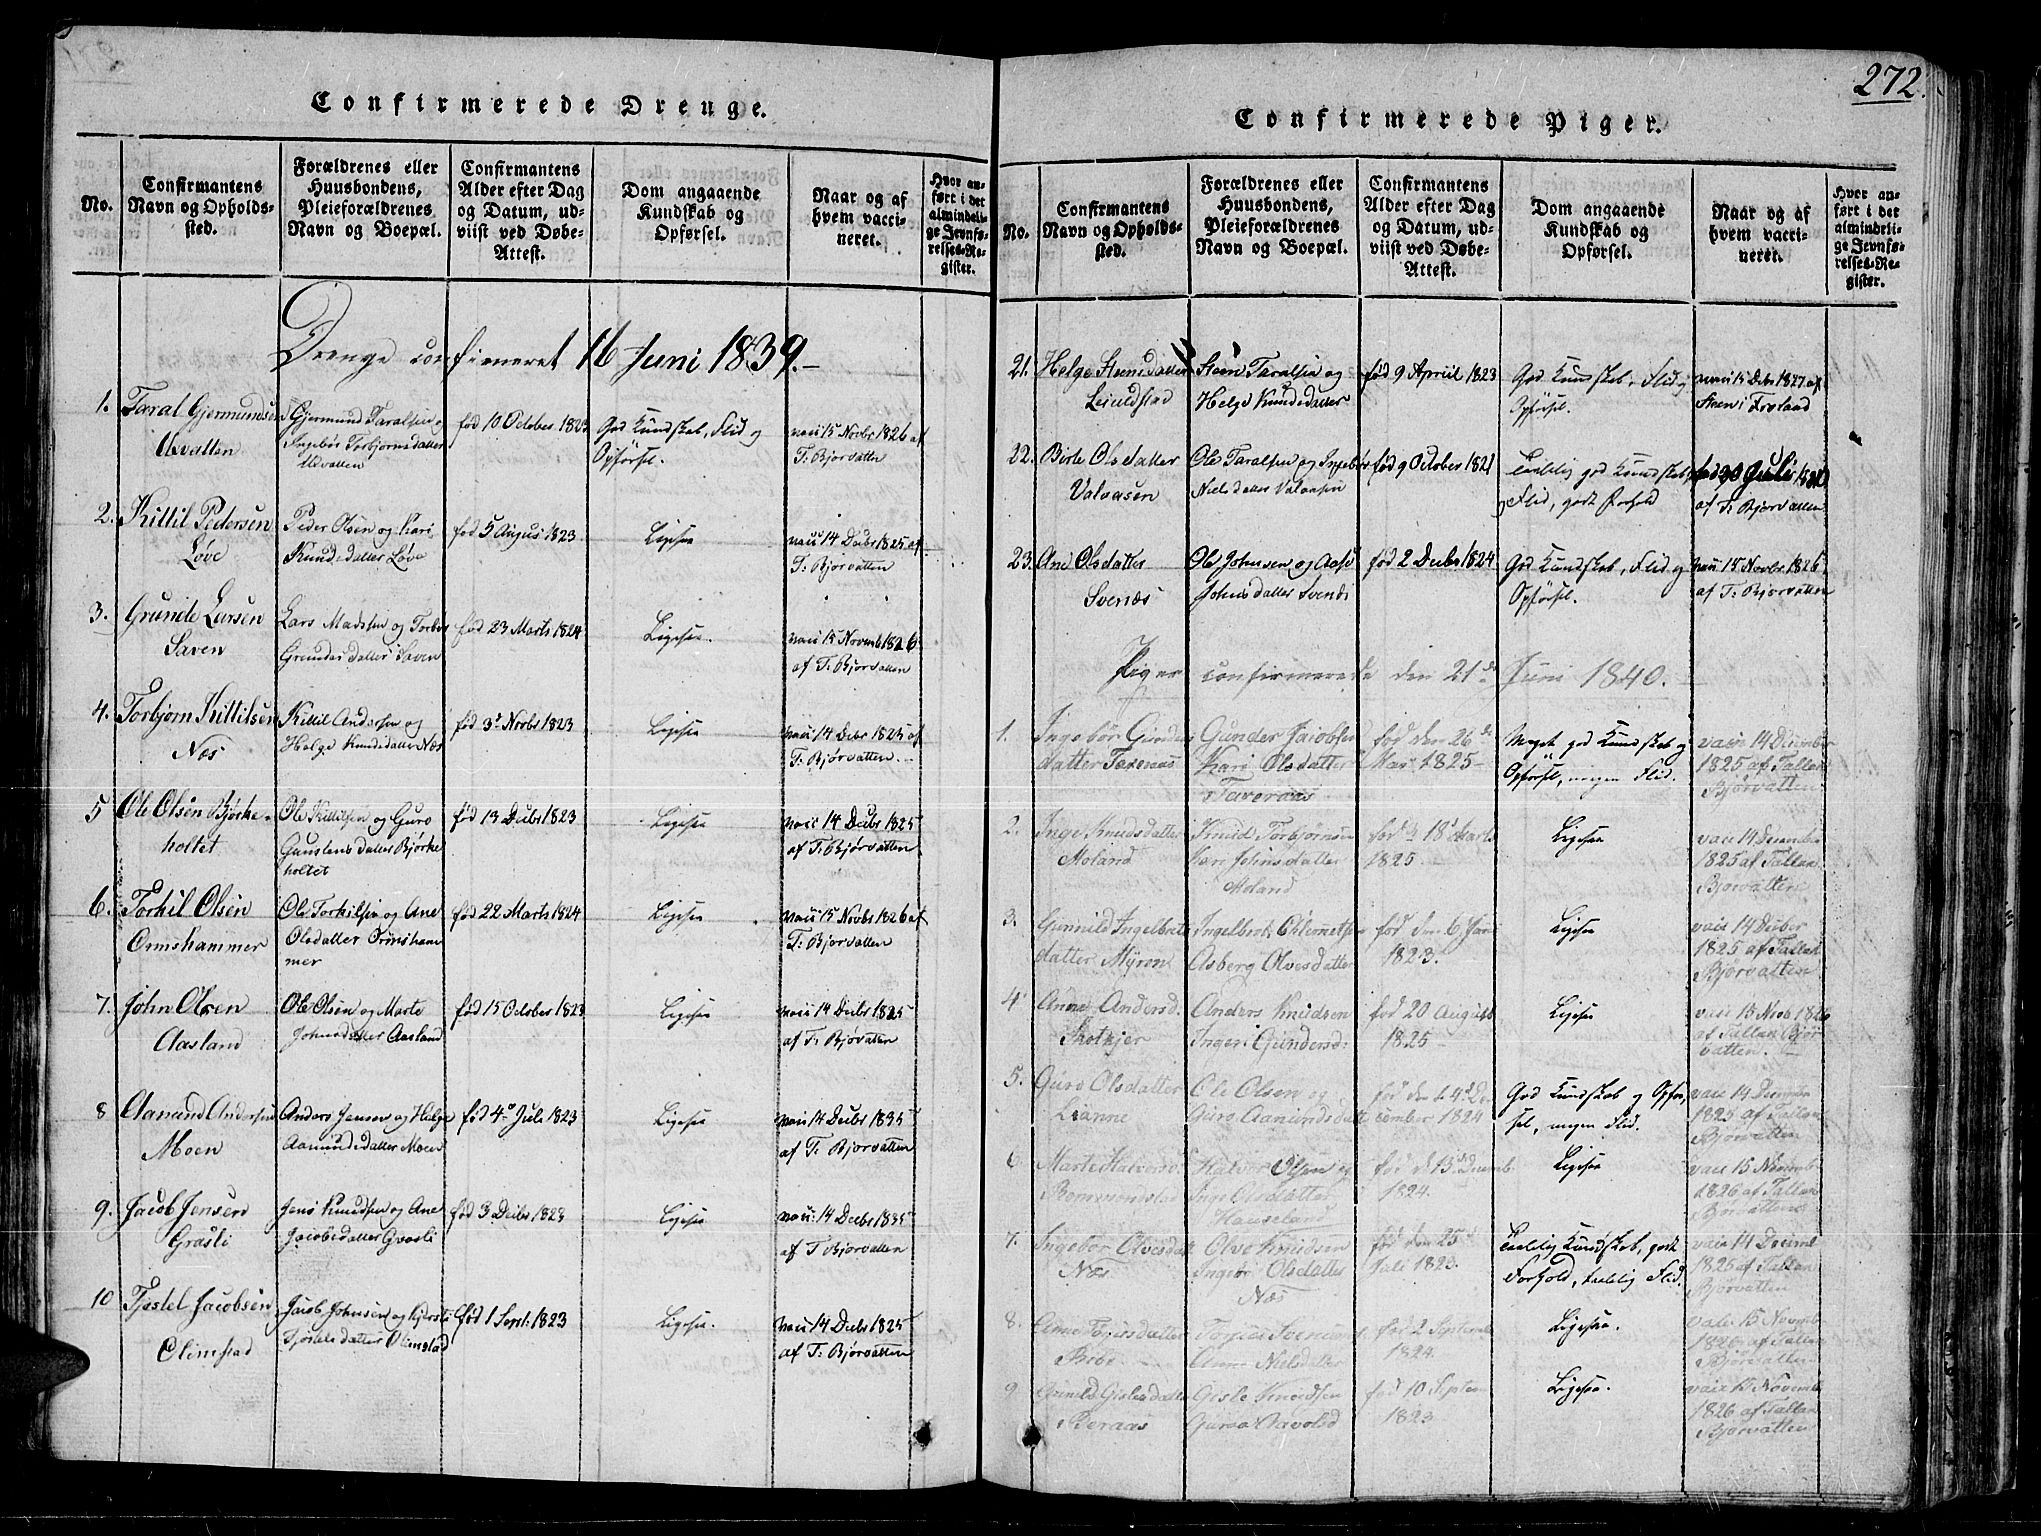 Confirmerede Drenge.
No.
Confirmantens
Navn og Opholds-
sted.
Forældrenes eller
Huusbondens,
Pleieforældrenes
Navn og Boepæl.
Confirmantens
Alder efter Dag
og Datum, ud-
viist ved Døbe-
Attest.
Dom angaaende
Kundskab og
Opførsel.
Naar og af
hvem vacci-
neret.
Hvor an-
ført i det
almindeli-
ge Jevnfø-
relses-Re-
gister.
Drenge confirmeret 16 Juni 1839.
1. Taral Gjermundsen
Gjermund Taralsen og
Ingebør Torbjørnsdatter
født 10 October 1823
God Kundskab, Flid og
Opførsel.
vacc 15 Novbr 1826 af
T. Bjorvatten
2. Kittil Pedersen
Løve
Peder Olsen og Kari
Knudsdatter Løve
fød 5 August 1823
Ligesaa
vacc 14 Decbr 1825 af
T. Bjorvatten
3. Grunde Larsen
Saven
Lars Madssen og Torbor
Grundesdatter Saven
fød 23 Marts 1824
Ligesaa.
vacc 15 Novemb 1826
af T. Bjorvatten
4. Torbjørn Kittilsen
Næs
Kittil Andersen og
Helge Knudsdatter Næs
fød 3 Novbr 1823
Ligesaa
vacc 14 Decbr 1825 af
T. Bjørvatten.
5 Ole Olsen Bjørke-
holtet
Ole Kittilsen og Guro
Gunstensdatter Bjørke
holtet
fød 13 Decbr 1823
Ligesaa
vacc 14 Decbr 1825
af T. Bjørvatten
6. Torkil Olsen
Ormshammer
Ole Torkilsen og Ane
Olsdatter Ormsham
mer
fød 22 Marts 1824
Ligesaa
vacc 15 Novbr 1826 af
T. Bjorvatten
7. John Olsen
Aasland
Ole Olsen og Marte
Johnsdatter Aasland
fød 15 October 1823
Ligesaa
vacc 14 Decbr 1825
af T. Bjorvatten
8 Aanund Andersen
Moen
Anders Jensen og Helge
Aanundsdatter Moen
fød 4 Juli 1823
Ligesaa
vacc 14 Decbr 1835
af T. Bjorvatten
9. Jacob Jensen
Grasli
Jens Knudsen og Ane
Jacobsdatter Grasli
fød 3 Decbr 1823
Ligesaa
vacc 14 Decbr 1835
af T Bjorvatten
10 Tjøstel Jacobsen
Olimstad
Jacob Johnsen og Kjersti
Tjøstelsdatter Olimstad
fød 1 Sept: 1823
Ligesaa.
vacc 14 Decbr 1825
af T. Bjørvatten
272.
Confirmerede Piger.
No.
Confirmantens
Navn og Opholds-
sted.
Forældrenes eller
Huusbondens,
Pleieforældrenes
Navn og Boepæl.
Confirmantens
Alder efter Dag
og Datum, ud-
viist ved Døbe-
Attest.
Dom angaaende
Kundskab og
Opførsel.
Naar og af
hvem vacci-
neret.
Hvor an-
ført i det
almindeli-
ge Jevnfø-
relses-Re-
gister.
21. Helge Steensdatter
Steen Taralsen og
Helge Knudsdatter
fød 9 April 1823
God Kundskab, Flid og
Opførsel.
vacc 15 Decbr 1827 af
Steen i Froland
22. Birte Olsdatter
Valaasen
Ole Taralsen og Ingebør
Nielsdatter Valaasen
fød 9 October 1821
Temelig god Kundskab
og Flid, godt Forhold
Juli
af T. Bjorvatten
23. Ane Olsdatter
Svenæs
Ole Johnsen og Aase
Johnsdatter Svenæs
fød 2 Decbr 1824
God Kundskab, Flid og
Opførsel.
vacc 15 Novbr 1826
af T. Bjorvatten
Piger confirmerede den 21de Juni 1840.
1. Ingebør Gunders
datter
Gunder Jacobsen
Kari Olsdatter
fød den 26de
Mai 1825
Meget god Kundskab og
Opførsel, megen Flid.
vacc 14 December
1825 af Tallan
Bjørvatten
2. Inge Knudsdatter
Moland
Knud Torbjørnsen
Kari Johnsdatter
Moland
fød d 18 Marts
1825
Ligesaa
vacc 14 December
1825 af Tallan
Bjorvatten
3. Gunnild Ingelbrets
datter Myren
Ingelbret Clemetsen
Asberg Olvesdatter
fød den 6 Jan
1823.
Ligesaa
vacc 14 Decber
1825 af Tallan
Bjorvatten
4 Anne Andersd.
Anders Knudsen
Inger Gundersd:
fød 20 August
1825
Ligesaa
vacc 15 Novb 1826
af Tallan Bjør
vatten.
5. Guro Olsdatter
Lianne
Ole Olsen og
Guro Aanundsdatt
fød den 4d De
cember 1824
God Kundskab og Opfør
sel, megen Flid.
vacc 14 December
1825 af Tallan
Bjorvatten
6. Marte Halvorsd
Halvor Olsen og
Inge Olsdatter
fød d 13 Decemb
1824.
Ligesaa
vacc 15 Novemb
1826 af Tallan
Bjorvatten
7. Ingebor Olvesdatt
Næs
Olve Knudsen
Ingebr Olsdatter
Næs
fød den 25d
Juli 1823.
Temelig Kundskab, godt
Forhold, temelig Flid.
vacc 14 Decemb
1825 af Tallan
Bjorvatten
8. Anne
Anne Nielsdatter
fød 2 September
1824.
Ligesaa.
vacc 15 Novemb
1826 af Tallan
Bjorvatten
9 Gunild Gislesdatter
Beraas
Gisle Knudsen
fød 10 Septem
1823
Ligesaa.
vacc 15 Novemb
1826 af Tallan
Bjorvatten